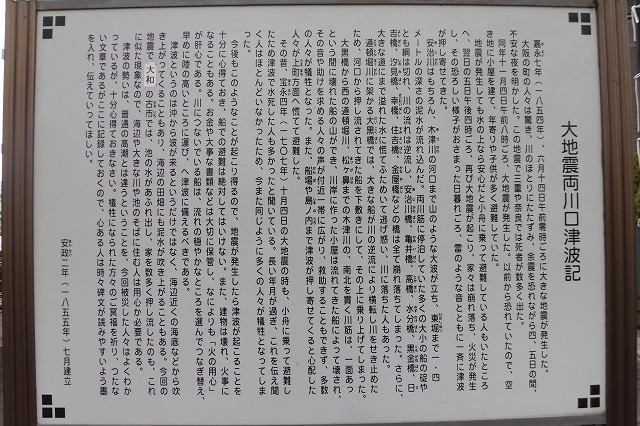 大地震両川口津波記
嘉永七年（一八五四年）、六月十四日午前零時ごろに大きな地震が発生した。
大阪の町の人々は驚き、川のほとりにたたずみ、余震を恐れながら四、五日の間、
不安な夜を明かした。この地震で三重や奈良では死者が数多く出た。
同年十一月四日午前八時ごろ、大地震が発生した。以前から恐れていたので、空
き地に小屋を建て、年寄りや子供が多く避難していた。
地震が発生しても水の上なら安心だと小舟に乗って避難している人もいたところ
へ、翌日の五日午後四時ごろ、再び大地震が起こり、家々は崩れ落ち、火災が発生
し、その恐ろしい様子がおさまった日暮れごろ、雷のような音とともに一斉に津波
が押し寄せてきた。
安治川はもちろん、木津川の河口まで山のような大波が立ち、東堀まで一・四
メートルの深さの泥水が流れ込んだ。両川筋に停泊していた多くの大小の船の碇や
とも綱は切れ、川の流れは逆流し、安治川橋、亀井橋、高橋、水分橋、黒金橋、日
吉橋、汐見橋、幸橋、住吉橋、金屋橋などの橋は全て崩れ落ちてしまった。さらに、
大きな道にまで溢れた水に慌てふためいて逃げ惑い、川に落ちた人もあった。
道頓堀川に架かる大黒橋では、大きな船が川の逆流により横転し川をせき止めた
ため、河口から押し流されてきた船を下敷きにして、その上に乗り上げてしまった。
大黒橋から西の道頓堀川、松ヶ鼻までの木津川の、南北を貫く川筋は、一面あっ
という間に壊れた船の山ができ、川岸に作った小屋は流れてきた船によって壊され、
その音や助けを求める人々の声が付近一帯に広がり、救助することもできず、多数
の人々が犠牲となった。また、船場や島ノ内まで津波が押し寄せてくると心配した
人々が上町方面へ慌てて避難した。
その昔、宝永四年（一七〇七年）十月四日の大地震の時も、小舟に乗って避難し
たため津波で水死した人も多かったと聞いている。長い年月が過ぎ、これを伝え聞
く人はほとんどいなかったため、今また同じように多くの人々が犠牲となってしま
った。
今後もこのようなことが起こり得るので、地震が発生したら津波が起こることを
十分に心得ておき、船での避難は絶対してはいけない。また、建物は壊れ、火事に
なることもある。お金や大事な書類などは大切に保管し、なによりも「火の用心」
が肝心である。川につないでいる船は、流れの穏やかなところを選んでつなぎ替え、
早めに陸の高いところに運び、津波に備えるべきである。
津波というのは沖から波が来るというだけではなく、海辺近くの海底などから吹
き上がってくることもあり、海辺の田畑にも泥水が吹き上がることもある。今回の
地震で大和の古市では、池の水があふれ出し、家を数多く押し流したのも、これ
に似た現象なので、海辺や大きな川や池のそばに住む人は用心が必要である。
津波の勢いは、普通の高潮とは違うということを、今回被災した人々はよくわか
っているが、十分心得ておきなさい。犠牲になられた方々のご冥福を祈り、つたな
い文章であるがここに記録しておくので、心ある人は時々碑文が読みやすいよう墨
を入れ、伝えていってほしい。
安政二年（一八五五年）七月建立